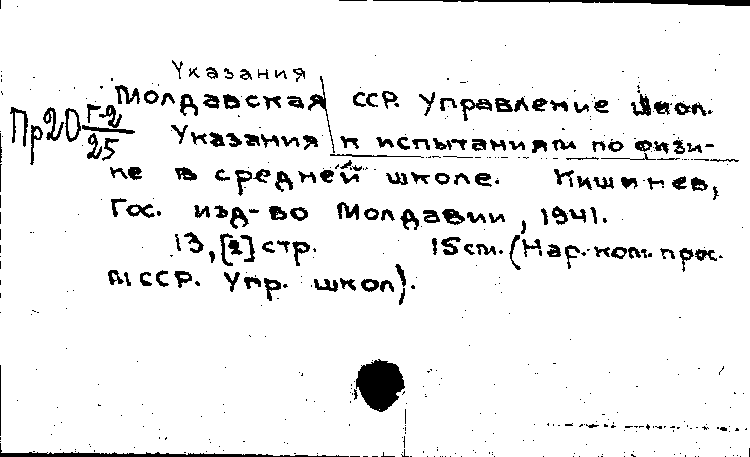 Указания
Молдавская ССР. Управление школ.
Пр20 Г-2/25
Указания к испытаниям по физи-
ке в средней школе. Кишинев,
Гос. изд-во Молдавии, 1941.
13, [2] стр. 15 см. (Нар. ком. прос.
МССР. Упр. школ).